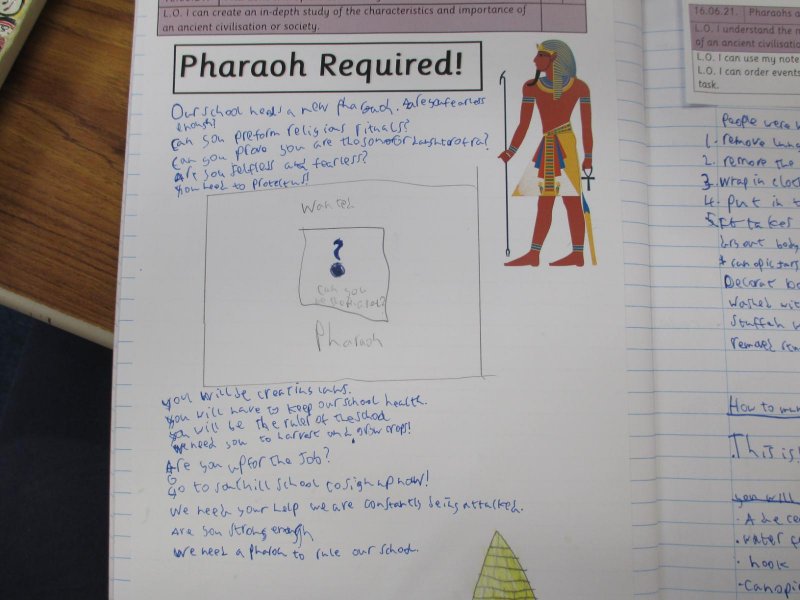 L.O. I can create an in-depth study of the characteristics and importance of
an ancient civilisation or society.
Pharaoh Required!
Our school needs a new pharaoh. Are you fearless
enough?
can you preform religious rituals?
Can you prove you are the son or daughter of ra?
Are you selfless and fearless?
you need to protect us!
Wanted
?
can you
be the
Pharaoh
you will be creating laws.
you will have to keep our school health.
you will be the ruler of the school
we need you to harvest and grow crops!
Are you up for the Job?
Go to school to sign up now!
We need your help we are constantly being attacked.
Are you strong enough
We need a Pharoh to rule our school.
16.06.21. Pharaohs a
L.O. I understand the
of an ancient civilisatio
L.O. I can use my note
L.O. I can order events
task.
People were
1. remove lung
2. remove the
3. wrap in clot
4. put in
5. It takes
body
canopic jars
Decorat
washed wit
stuffed
removed
How to mu
This is
you will
· A
· water
· hook
· Canopi